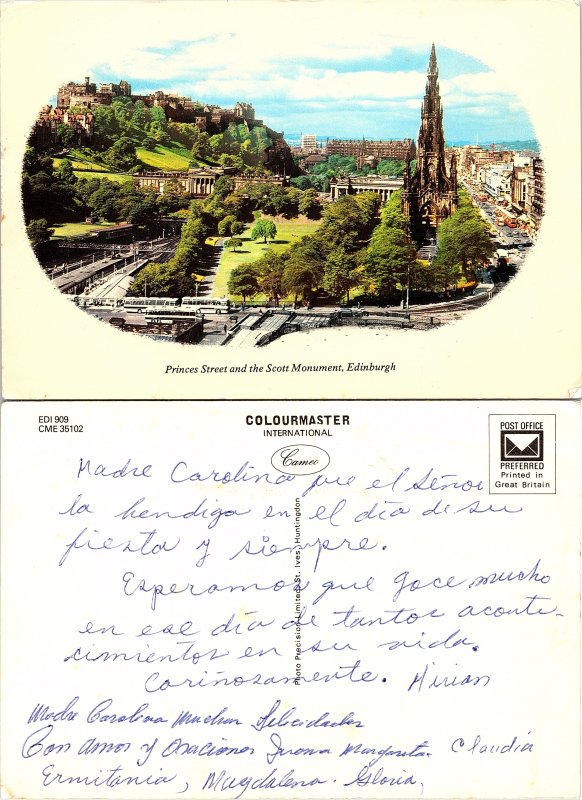 Princes Street and the Scott Monument, Edinburgh
EDI 909
CME 35102
COLOURMASTER
INTERNATIONAL
Cameo
POST OFFICE
PREFERRED
Printed in
Great Britain
Photo Precision Limited, St. Ives, Huntingdon
Madre Carolina que el Señor
la bendiga en el día de su
fiesta y siempre.
Esperamos que goce mucho
en ese día de tantos aconte-
cimientos en su vida.
Cariñosamente. Mirian
Madre Carolina Muchas Felicidades
Con Amor y Oraciones Juana Margarita. Claudia
Ermitania, Magdalena. Gloria,